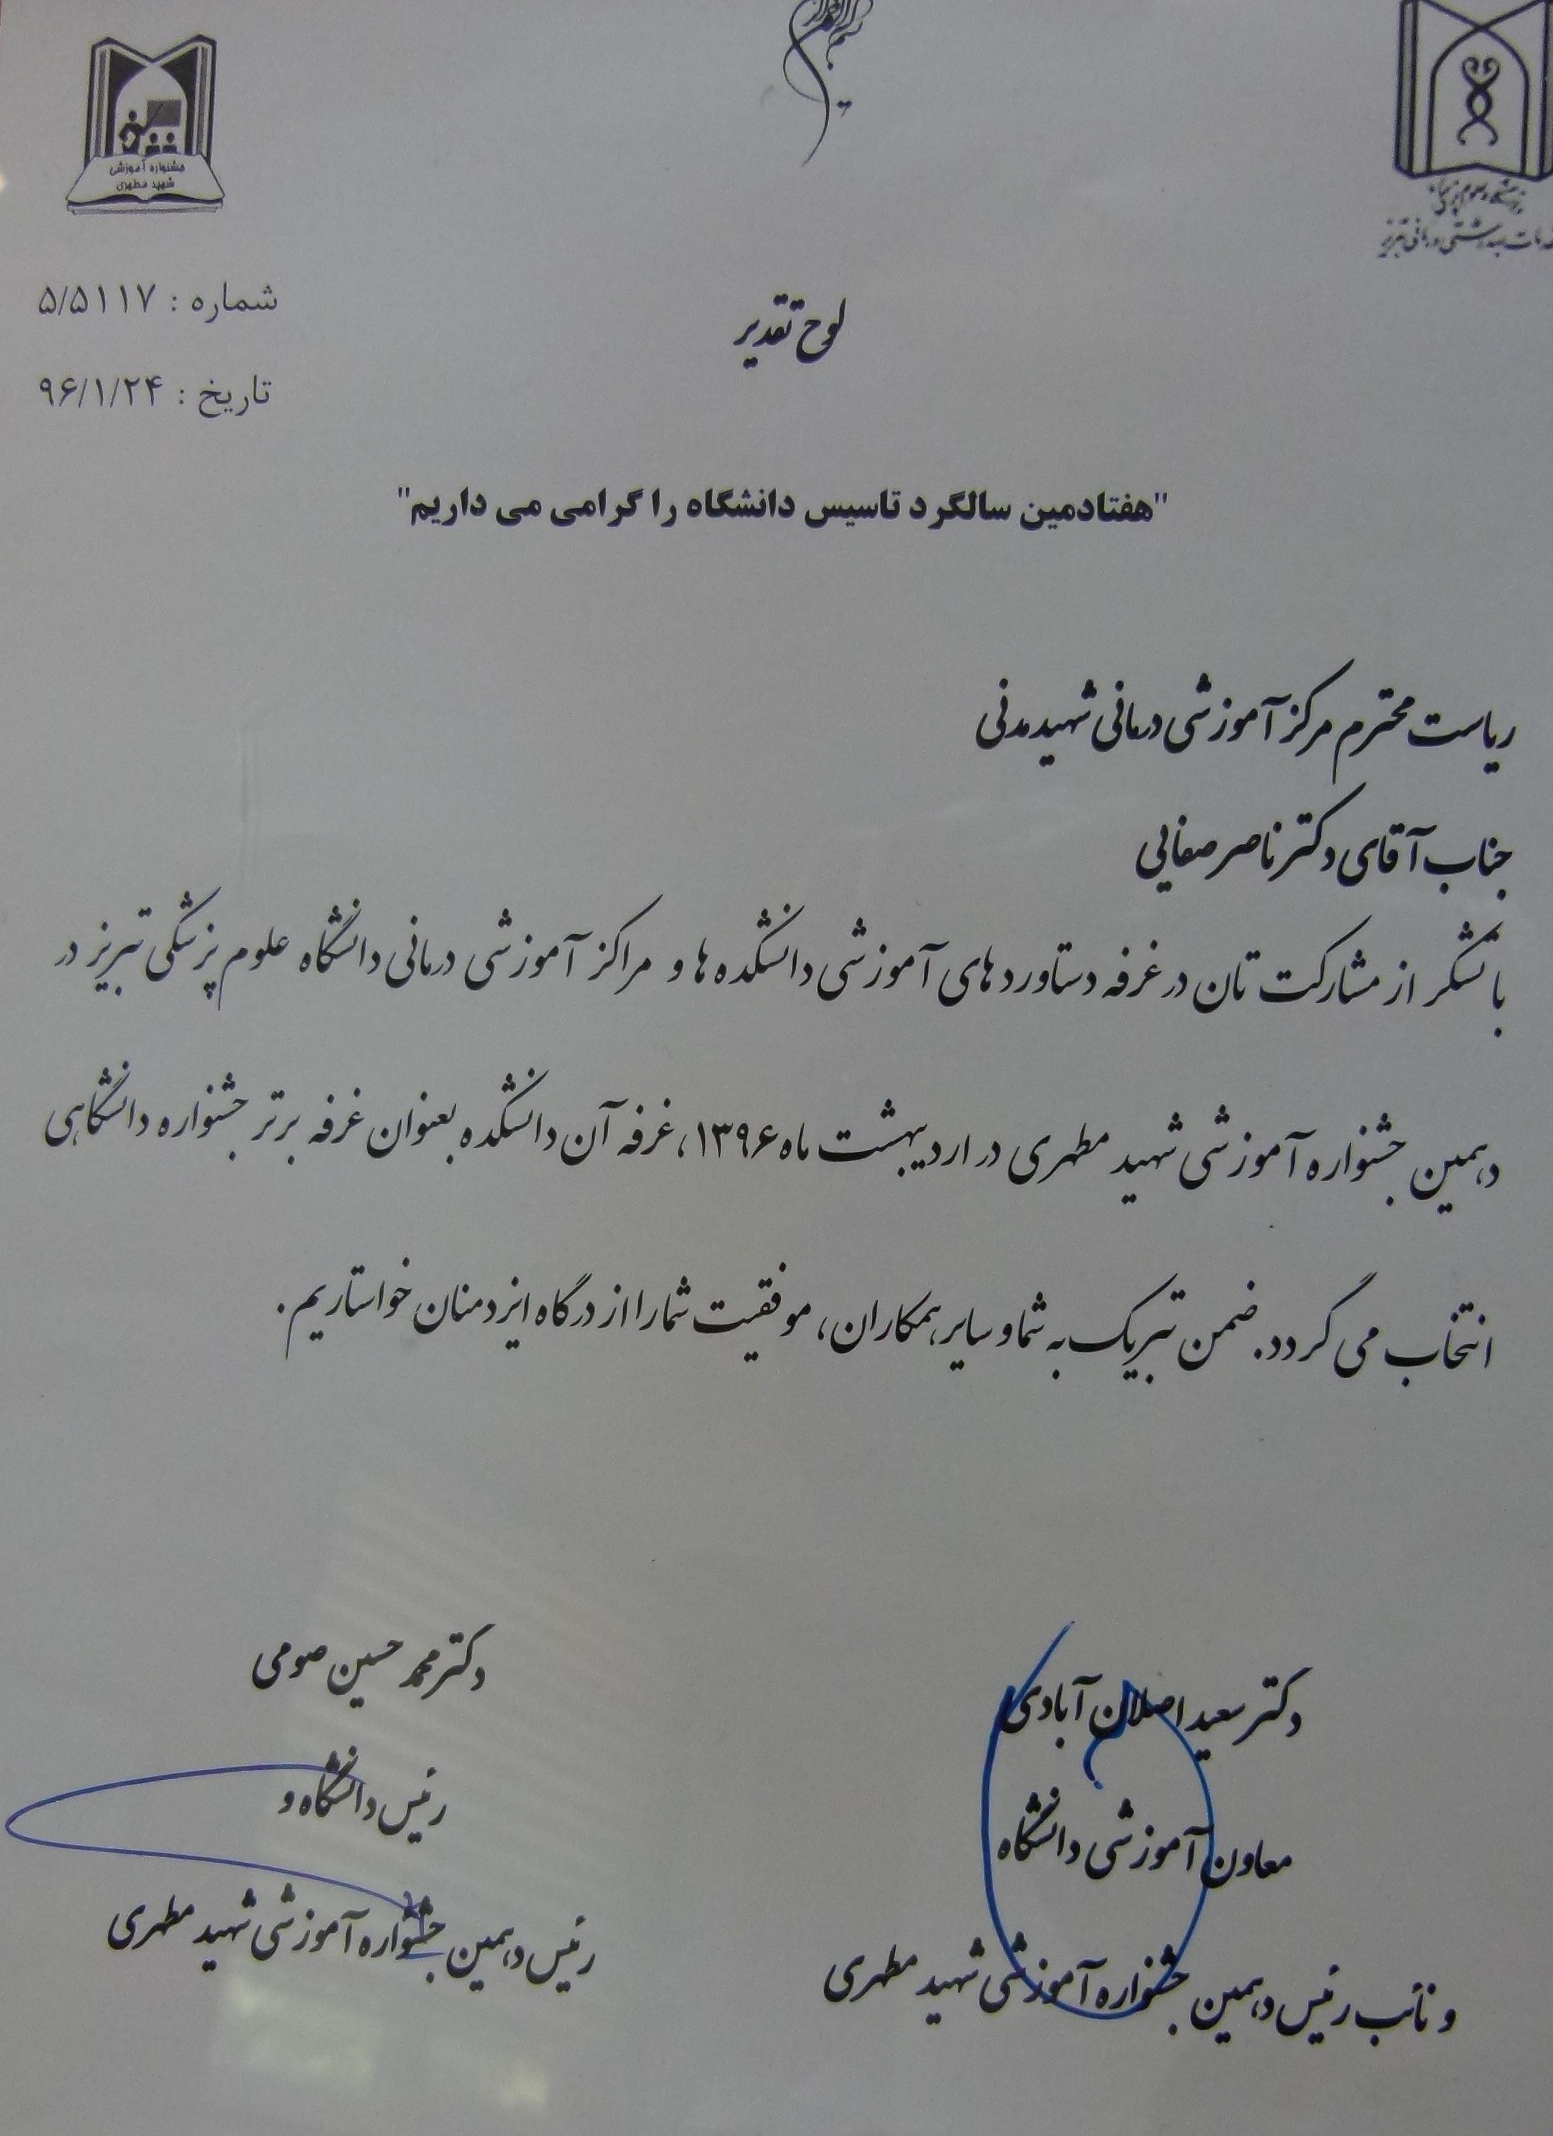 جشنواره آموزشی
شهید مطهری
دانشگاه علوم پزشکی
بهداشتی درمانی تبریز
شماره : ۵/۵۱۱۷
تاریخ : ۹۶/۱/۲۴
لوح تقدیر
"هفتادمین سالگرد تاسیس دانشگاه را گرامی می داریم"
ریاست محترم مرکز آموزشی درمانی شهید مدنی
جناب آقای دکتر ناصر صفایی
با تشکر از مشارکت تان در غرفه دستاوردهای آموزشی دانشکده ها و مراکز آموزشی درمانی دانشگاه علوم پزشکی تبریز در
دهمین جشنواره آموزشی شهید مطهری در اردیبهشت ماه ۱۳۹۶، غرفه آن دانشکده بعنوان غرفه برتر جشنواره دانشگاهی
انتخاب می گردد. ضمن تبریک به شما و سایر همکاران، موفقیت شما را از درگاه ایزد منان خواستاریم.
دکتر سعید اصلان آبادی
معاون آموزشی دانشگاه
و نائب رئیس دهمین جشنواره آموزشی شهید مطهری
دکتر محمد حسین صومی
رئیس دانشگاه و
رئیس دهمین جشنواره آموزشی شهید مطهری